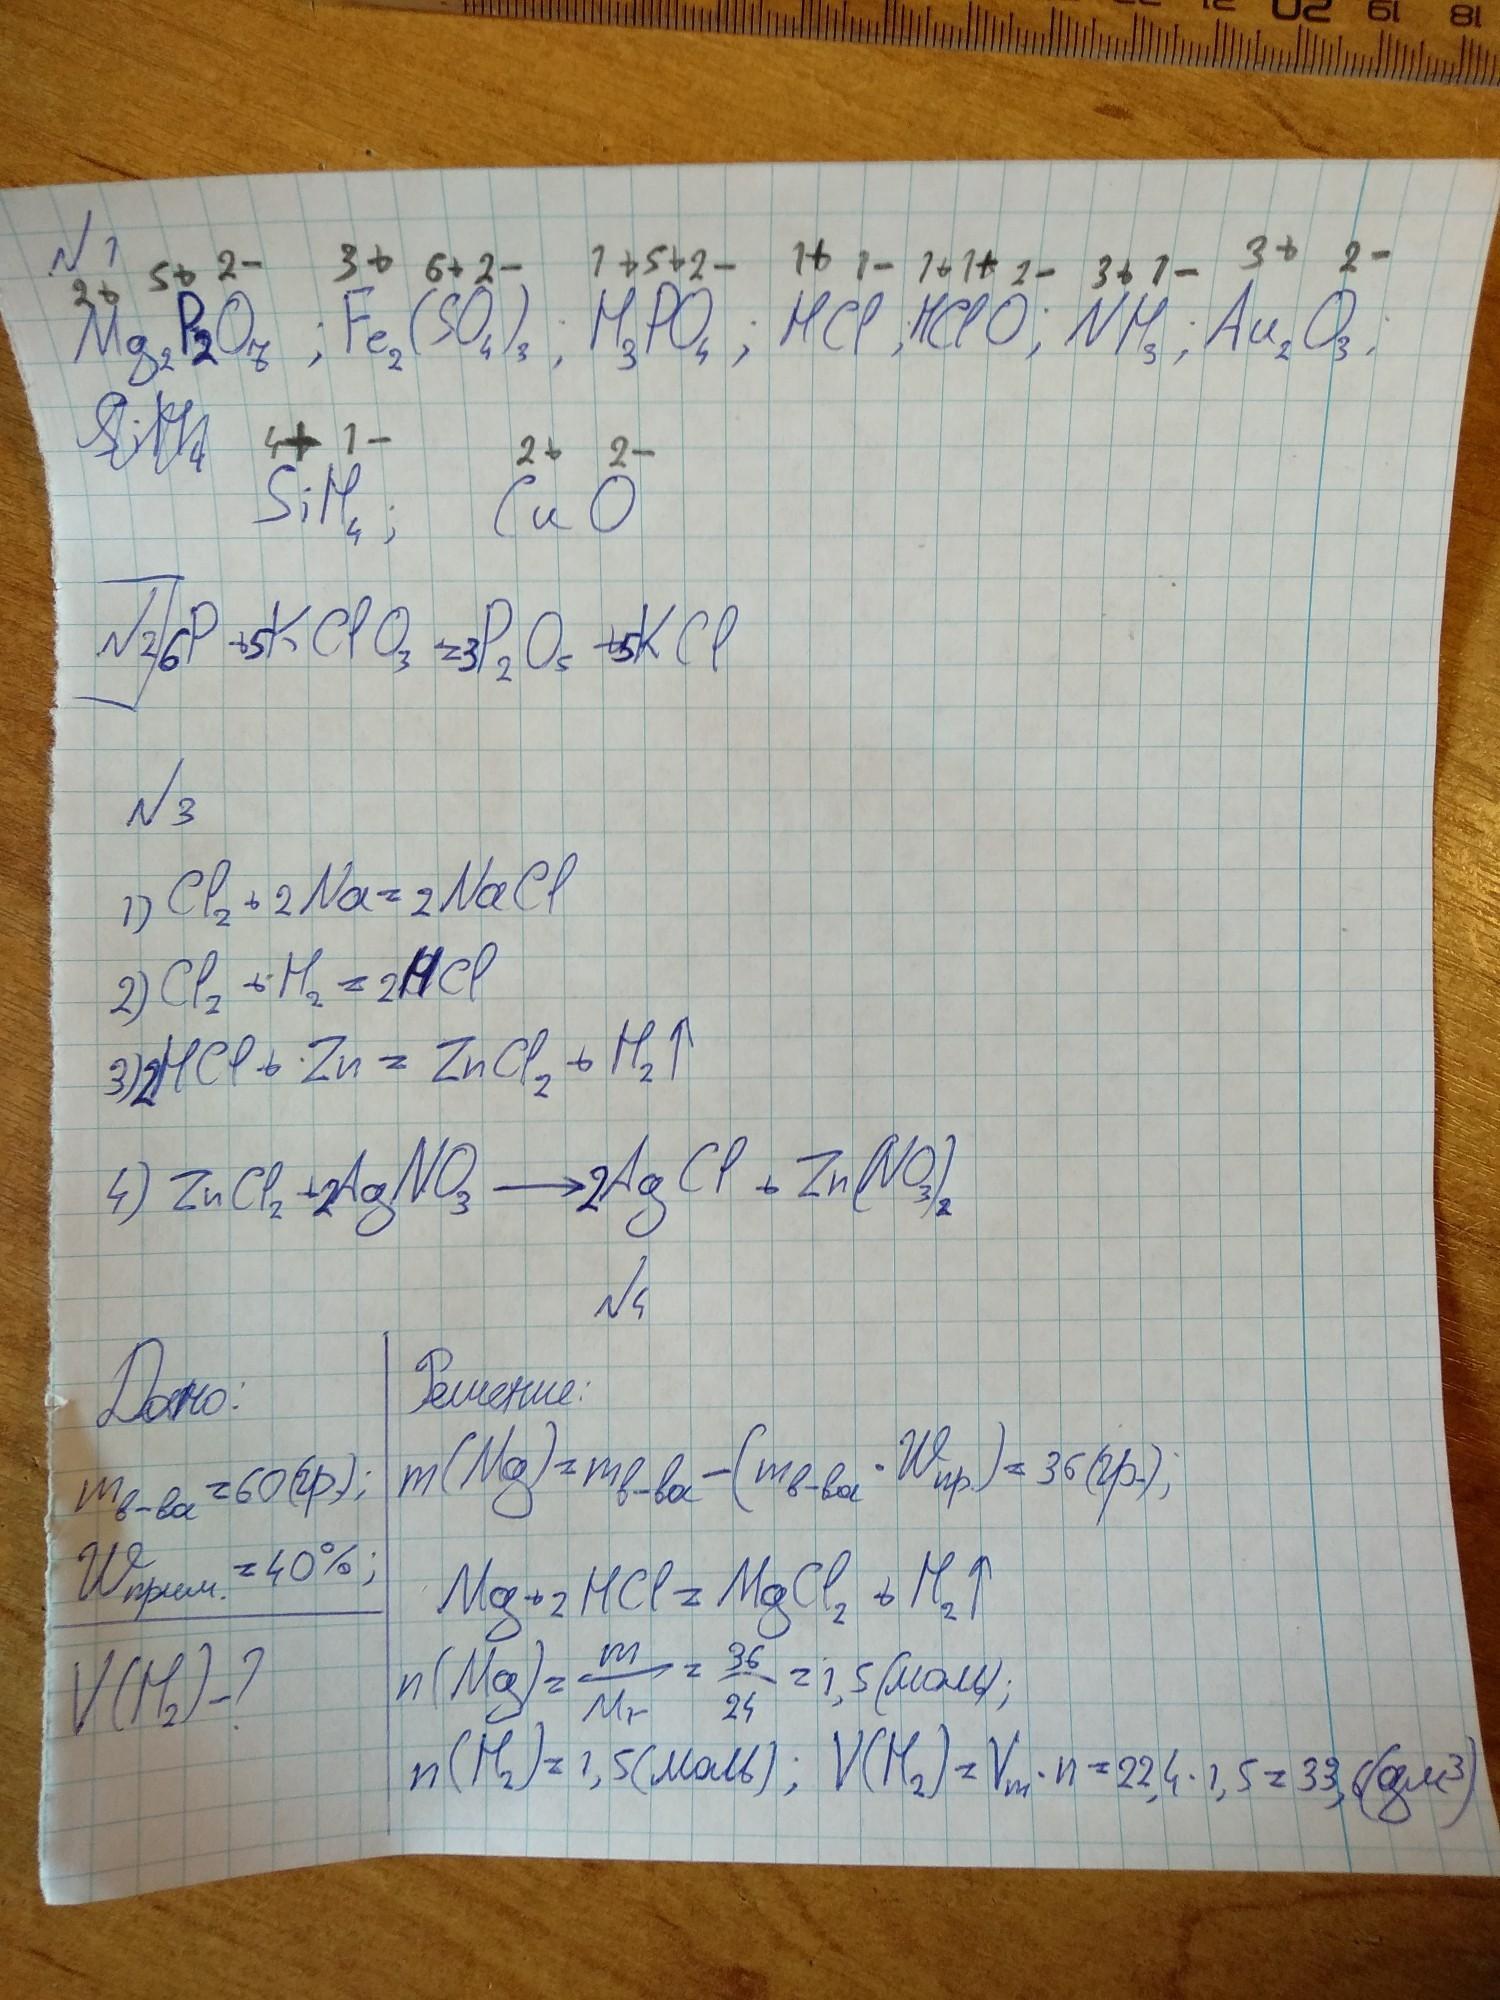 18 19 20 21 22
№1
2+ 5+ 2- 3+ 6+ 2- 1+ 5+ 2- 1+ 1- 1+ 1+ 2- 3+ 1- 3+ 2-
Mg₂P₂O₇; Fe₂(SO₄)₃; H₃PO₄; HCl; HClO; NH₃; Au₂O₃;
4+ 1- 2+ 2-
SiH₄; CuO
№2 6P + 5KClO₃ = 3P₂O₅ + 5KCl
№3
1) Cl₂ + 2Na = 2NaCl
2) Cl₂ + H₂ = 2HCl
3) 2HCl + Zn = ZnCl₂ + H₂↑
4) ZnCl₂ + 2AgNO₃ → 2AgCl + Zn(NO₃)₂
№4
Дано:
m в-ва = 60(гр.);
W прим. = 40%;
V(H₂) - ?
Решение:
m(Mg) = m в-ва - (m в-ва · W пр.) = 36(гр.);
Mg + 2HCl = MgCl₂ + H₂↑
n(Mg) = m/Mr = 36/24 = 1,5(моль);
n(H₂) = 1,5(моль); V(H₂) = Vm · n = 22,4 · 1,5 = 33,6(дм³)